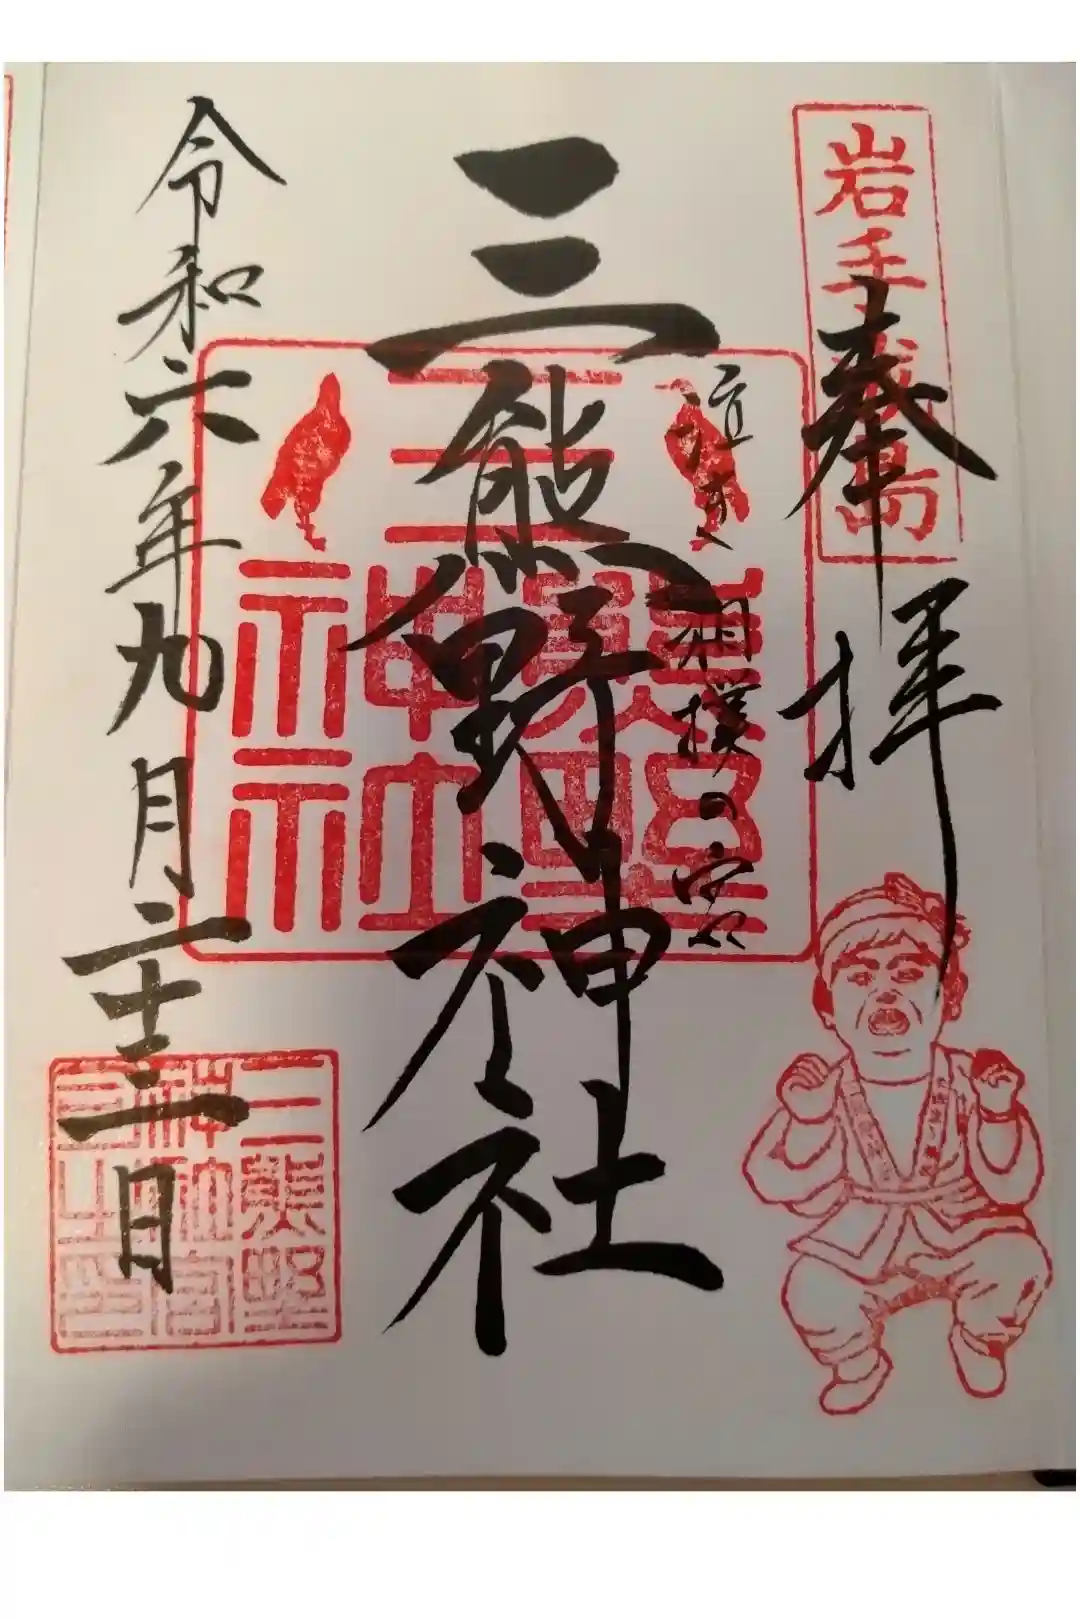 岩手成島
奉拝
泣き相撲の宮
三熊野神社
三熊野神社
令和六年九月二十二日
三熊野
神社宮
司之印